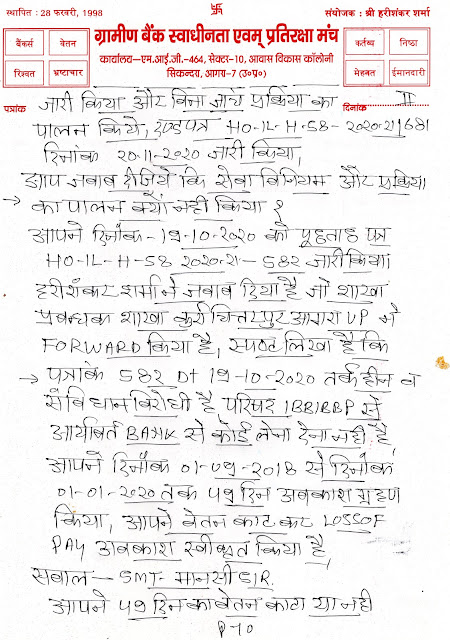 स्थापित : 28 फरवरी, 1998
संयोजक : श्री हरीशंकर शर्मा
बैंकर्स
वेतन
रिश्वत
भ्रष्टाचार
ग्रामीण बैंक स्वाधीनता एवम् प्रतिरक्षा मंच
कार्यालय—एम.आई.जी.-464, सेक्टर-10, आवास विकास कॉलोनी
सिकन्दरा, आगरा-7 (उ०प्र०)
कर्तव्य
निष्ठा
मेहनत
ईमानदारी
पत्रांक
दिनांक
II
जारी किया और बिना जांच प्रक्रिया का
पालन किये, दण्डपत्र HO-IL-H-58-2020-21/681
दिनांक 20-11-2020 जारी किया,
आप जबाब दीजिये कि सेवा विनियम और प्रक्रिया
→ का पालन क्यों नहीं किया ?
आपने दिनांक-19-10-2020 को पूछताछ पत्र
HO-IL-H-58 2020-21-582 जारी किया।
हरीशंकर शर्मा ने जबाब दिया है जो शाखा
प्रबन्धक शाखा कुर्रा चित्तरपुर आगरा UP ने
FORWARD किया है, स्पष्ट लिखा है कि
→ पत्रांक 582 DT 19-10-2020 तर्क हीन व
संविधान विरोधी है परिषद IBBIRBP से
आर्यावर्त BANK से कोई लेना देना नहीं है
आपने दिनांक 01-09-2018 से दिनांक
01-01-2020 तक 59 दिन अवकाश ग्रहण
किया, आपने वेतन काट कर LOSS OF
PAY अवकाश स्वीकृत किया है,
सवाल — SMT- मानसी SIR.
आपने 59 दिन का वेतन काटा या नहीं
P-10